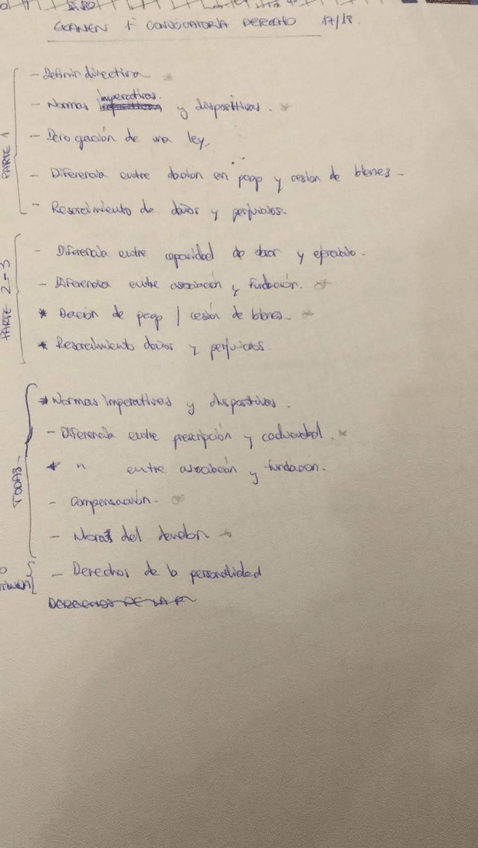 EXAMEN 1ª CONVOCATORIA DERECHO 17/18.
PARTE 1
- Definir directiva *
- Normas imperativas y dispositivas. *
- Derogación de una ley.
- Diferencia entre dación en pago y cesión de bienes -
- Resarcimiento de daños y perjuicios.
PARTE 2-3
- Diferencia entre capacidad de obrar y
- Diferencia entre asociación y fundación. *
* Dación de pago / cesión de bienes. *
* Resarcimiento daños y perjuicios
TODAS -
* Normas imperativas y dispositivas.
- Diferencia entre prescripción y caducidad. *
* " entre asociación y fundación.
- Compensación. *
- Mora del deudor *
- Derechos de la personalidad